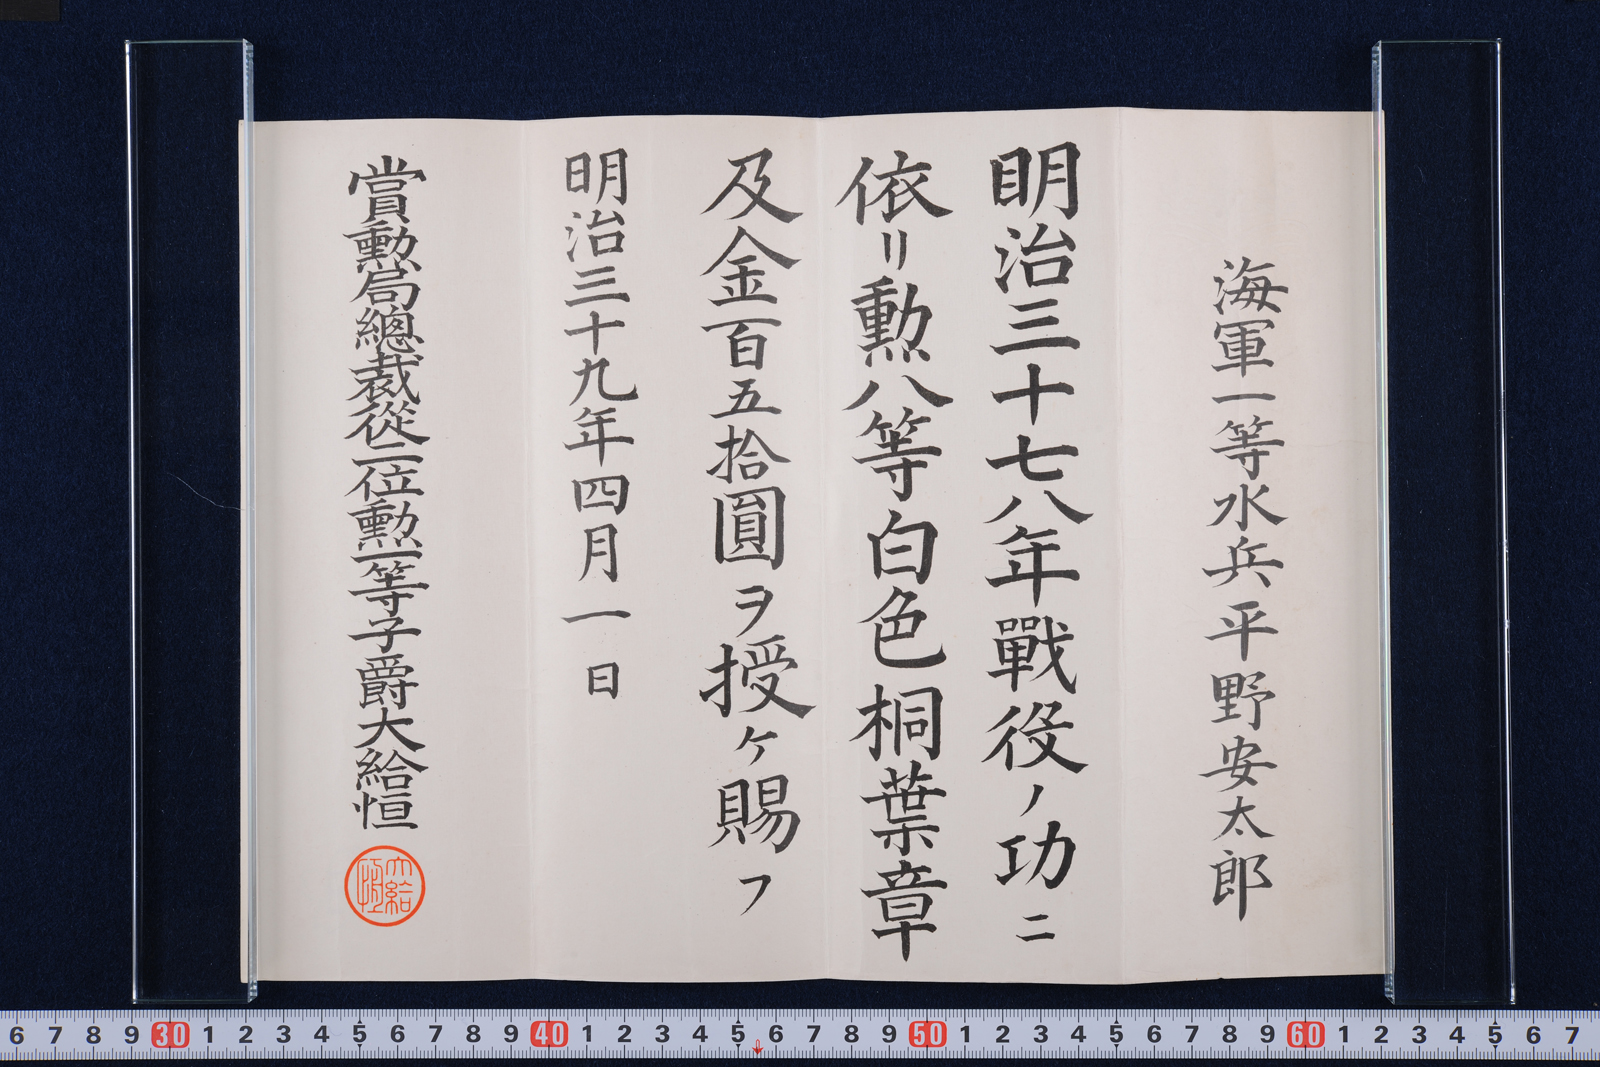 海軍一等水兵平野安太郎
明治三十七八年戰役ノ功ニ
依リ勲八等白色桐葉章
及金百五拾圓ヲ授ケ賜フ
明治三十九年四月一日
賞勲局總裁從二位勲一等子爵大給恒
大給恒
6 7 8 9 30 1 2 3 4 5 6 7 8 9 40 1 2 3 4 5 6 7 8 9 50 1 2 3 4 5 6 7 8 9 60 1 2 3 4 5 6 7